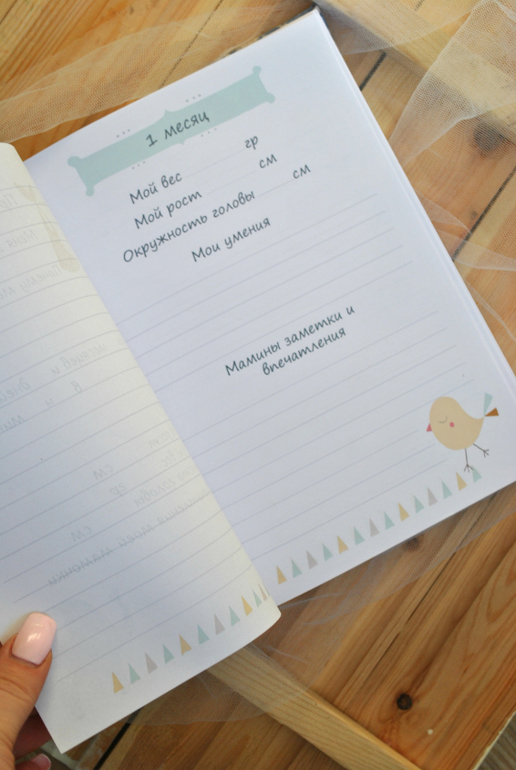 1 месяц
Мой вес гр
Мой рост см
Окружность головы см
Мои умения
Мамины заметки и
впечатления